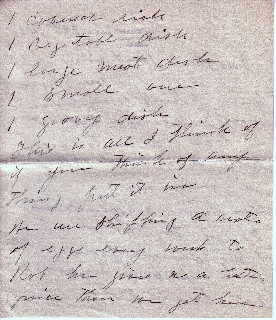 1 covered dish
1 vegetable dish
1 large meat dish
1 small one
1 gravy dish
This is all I think of
if you think of any
thing put it in
We are shipping a crate
of eggs every week to
Rob he gives me a
price than we get here